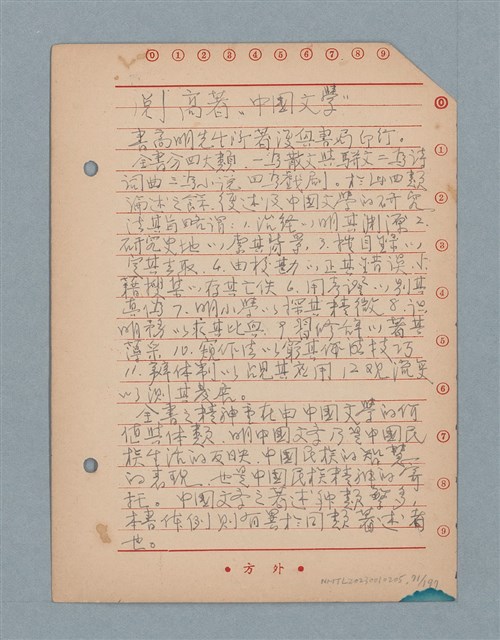 0 1 2 3 4 5 6 7 8 9
高著“中國文學”
書高明先生所著復興書局印行。
全書分四大類，一為散文與駢文二為詩
詞曲三為小說四為戲劇。於此四類
論述之餘，復述及中國文學的研究
法其旨略謂：1.治經以明其淵源 2.
研究史地以索其背景 3.按目錄以
定其去取 4.由校勘以正其錯誤 5.
籍輯其以存其亡佚 6.用考證以別其
真偽 7.明小學以探其精微 8.
明 以求其比興 9.習修辭以著其
10.窺作法以窮其体與技巧
11.辨体制以觀其應用 12.觀流變
以測其發展。
全書之精神乃在由中國文學的何
值與体類，明中國文學乃是中國民
族生活的反映，中國民族的智慧
的表現，也是中國民族精神的寄
托。中國文學之著述種類繁多，
本書体例則有異於同類著述者
也。
0
1
2
3
4
5
6
7
8
9
• 方 外 •
NMTL20230010205